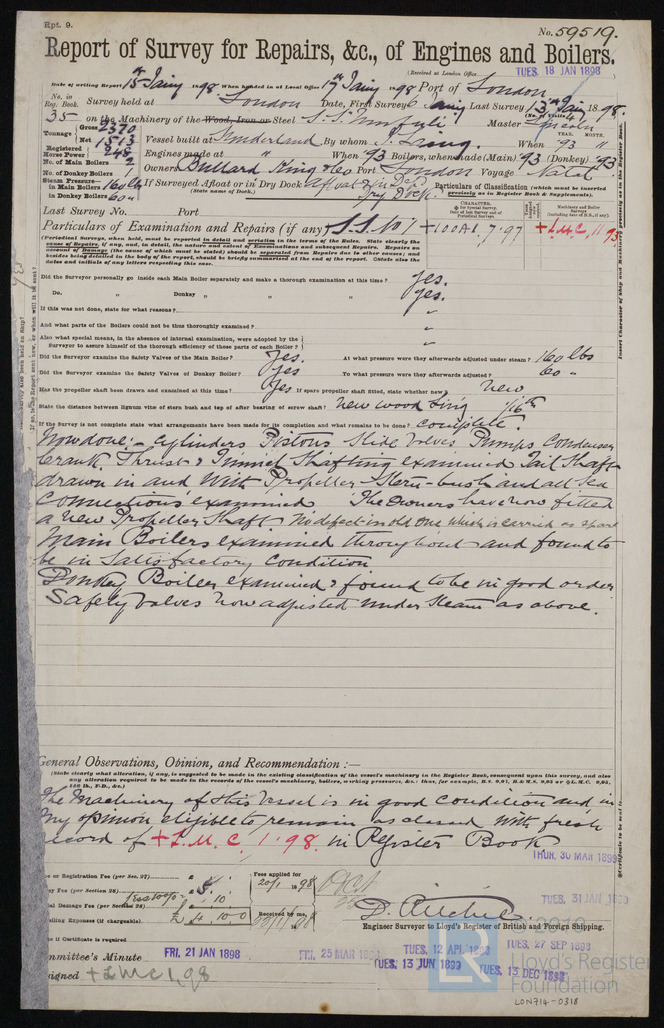 Rpt. 9.
No. 59519.
Report of Survey for Repairs, &c., of Engines and Boilers.
(Received at London Office TUES. 18 JAN 1898
Date of writing Report 15th Jany 1898 When handed in at Local Office 17th Jany 1898 Port of London
No. in Reg. Book. Survey held at London Date, First Survey 6 Jany Last Survey 13th Jany 1898.
(No. of Visits 4
35 on the Machinery of the Wood, Iron or Steel S.S. Umfuli Master Lincoln
Tonnage Gross 2370
Net 1513
Vessel built at Sunderland By whom J. Laing. When '93
YEAR. MONTH.
Registered Horse Power 248
Engines made at " When '93 Boilers, when made (Main) '93 (Donkey) '93
No. of Main Boilers 2
No. of Donkey Boilers 1
Owners Bullard King & Co Port London Voyage Natal
Steam Pressure in Main Boilers 160 lbs
in Donkey Boilers 60 "
If Surveyed Afloat or in Dry Dock Afloat & in
(State name of Dock.) Dry Dock.
Particulars of Classification (which must be inserted precisely as in Register Book & Supplements).
Last Survey No. Port
Particulars of Examination and Repairs (if any) S.S. No 1
+100A1. 7.97
+L.M.C. 11 93
(Periodical Surveys, when held, must be reported in detail and seriatim in the terms of the Rules. State clearly the cause of Repairs, if any, and, in detail, the nature and extent of Examinations and subsequent Repairs. Repairs on account of Damage (the name of which must be stated) should be separated from Repairs due to other causes; and besides being detailed in the body of the report, should be briefly summarised at the end of the report. State also the dates and initials of any letters respecting this case.
Did the Surveyor personally go inside each Main Boiler separately and make a thorough examination at this time? Yes.
Do. " Donkey " " " Yes.
If this was not done, state for what reasons? "
And what parts of the Boilers could not be thoroughly examined? "
Also what special means, in the absence of internal examination, were adopted by the Surveyor to assure himself of the thorough efficiency of those parts of each Boiler? "
Did the Surveyor examine the Safety Valves of the Main Boiler? Yes. At what pressure were they afterwards adjusted under steam? 160 lbs
Did the Surveyor examine the Safety Valves of Donkey Boiler? Yes To what pressure were they afterwards adjusted? 60 "
Has the propeller shaft been drawn and examined at this time? Yes If spare propeller shaft fitted, state whether new New
State the distance between lignum vitæ of stern bush and top of after bearing of screw shaft? new wood fing 1/16th
If the Survey is not complete state what arrangements have been made for its completion and what remains to be done? Complete.
Now done:- Cylinders Pistons Slide Valves Pumps Condenser
Crank Thrust & Tunnel Shafting examined Tail Shaft
drawn in and with Propeller Stern-bush and all Sea
Connections examined The Owners have now fitted
a new Propeller Shaft No defect in old one which is carried as spare
Main Boilers examined throughout and found to
be in Satisfactory Condition
Donkey Boiler examined & found to be in good order
Safety valves now adjusted under steam as above.
General Observations, Opinion, and Recommendation :—
(State clearly what alteration, if any, is suggested to be made in the existing classification of the vessel's machinery in the Register Book, consequent upon this survey, and also any alteration required to be made in the records of the vessel's machinery, boilers, working pressures, &c.
The Machinery of this Vessel is in good Condition and in
my opinion eligible to remain as classed with fresh
record of +L.M.C. 1.98. in Register Book
THUR. 30 MAR 1899
or Registration Fee (per Sec. 27)
Fees applied for 20/1 1898
Fee (per Section 28) 5
Damage Fee (per Section 28) 10
Travelling Expenses (if chargeable) £ 4.10.0
Received by me,
TUES. 31 JAN
D. Ritchie.
Engineer Surveyor to Lloyd's Register of British and Foreign Shipping.
if Certificate is required
Committee's Minute FRI. 21 JAN 1898
FRI. 25 MAR
TUES. 12 APL 1898
TUES. 27 SEP 1898
TUES. 13 JUN 1899
TUES. 13 DEC 1898
Assigned +LMC 1,98
© 2019
Lloyd's Register
Foundation
LON714-0318